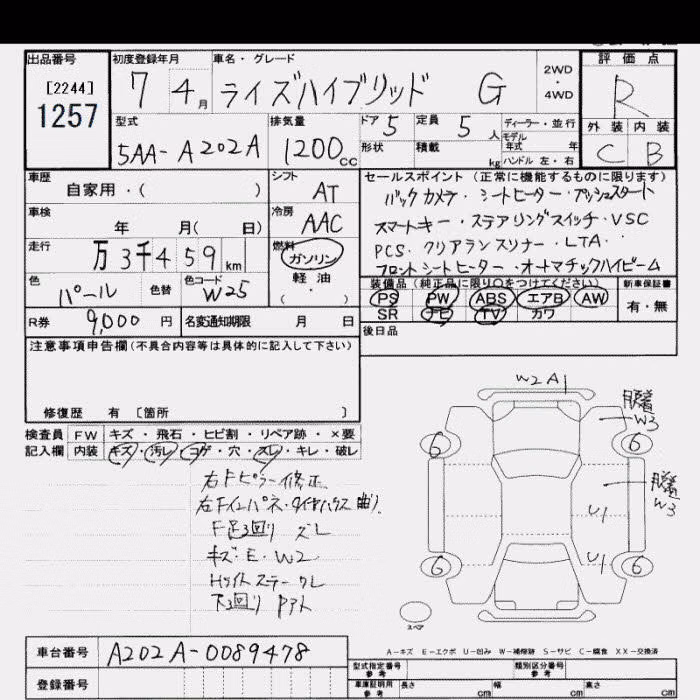 出品番号 初度登録年月 車名・グレード 評価点
[2244] 7 4月 ライズハイブリッド G 2WD・4WD R
1257
型式 排気量 ドア 5 定員 5人 ディーラー・並行 外装 内装
5AA-A202A 1200cc 形状 積載 kg モデル年式 年 ハンドル 左・右 C B
車歴 シフト セールスポイント(正常に機能するものに限ります)
自家用・( ) AT バックカメラ・シートヒーター・プッシュスタート
車検 冷房 スマートキー・ステアリングスイッチ・VSC
年 月( 日) AAC PCS・クリアランスソナー・LTA
走行 燃料 フロントシートヒーター・オートマチックハイビーム
万3千459km ガソリン 軽油 ( ・ )
装備品(純正品に限り○をつけてください) 新車保証書
色 色替 色コード PS PW ABS エアB AW 有・無
パール W25 SR ナビ TV カワ
R券 9,000円 名変通知期限 月 日 後日品
注意事項申告欄(不具合内容等は具体的に記入して下さい)
修復歴 有 [箇所 ]
検査員 FW キズ・飛石・ヒビ割・リペア跡・×要
記入欄 内装 キズ・汚レ・コゲ・穴・スレ・キレ・破レ
右Fピラー修正
曲り
F足3回り ズレ
キズ・E・W2
下3回り
W2 A1
W3
6 6
W3
U1
U1
6 6
スペア
A-キズ E-エクボ U-凹み W-補修跡 S-サビ C-腐食 XX-交換済
車台番号 A202A-0089478
登録番号
型式指定番号 参考 類別区分番号 参考
車庫証明用 参考 長さ cm 幅 cm 高さ cm